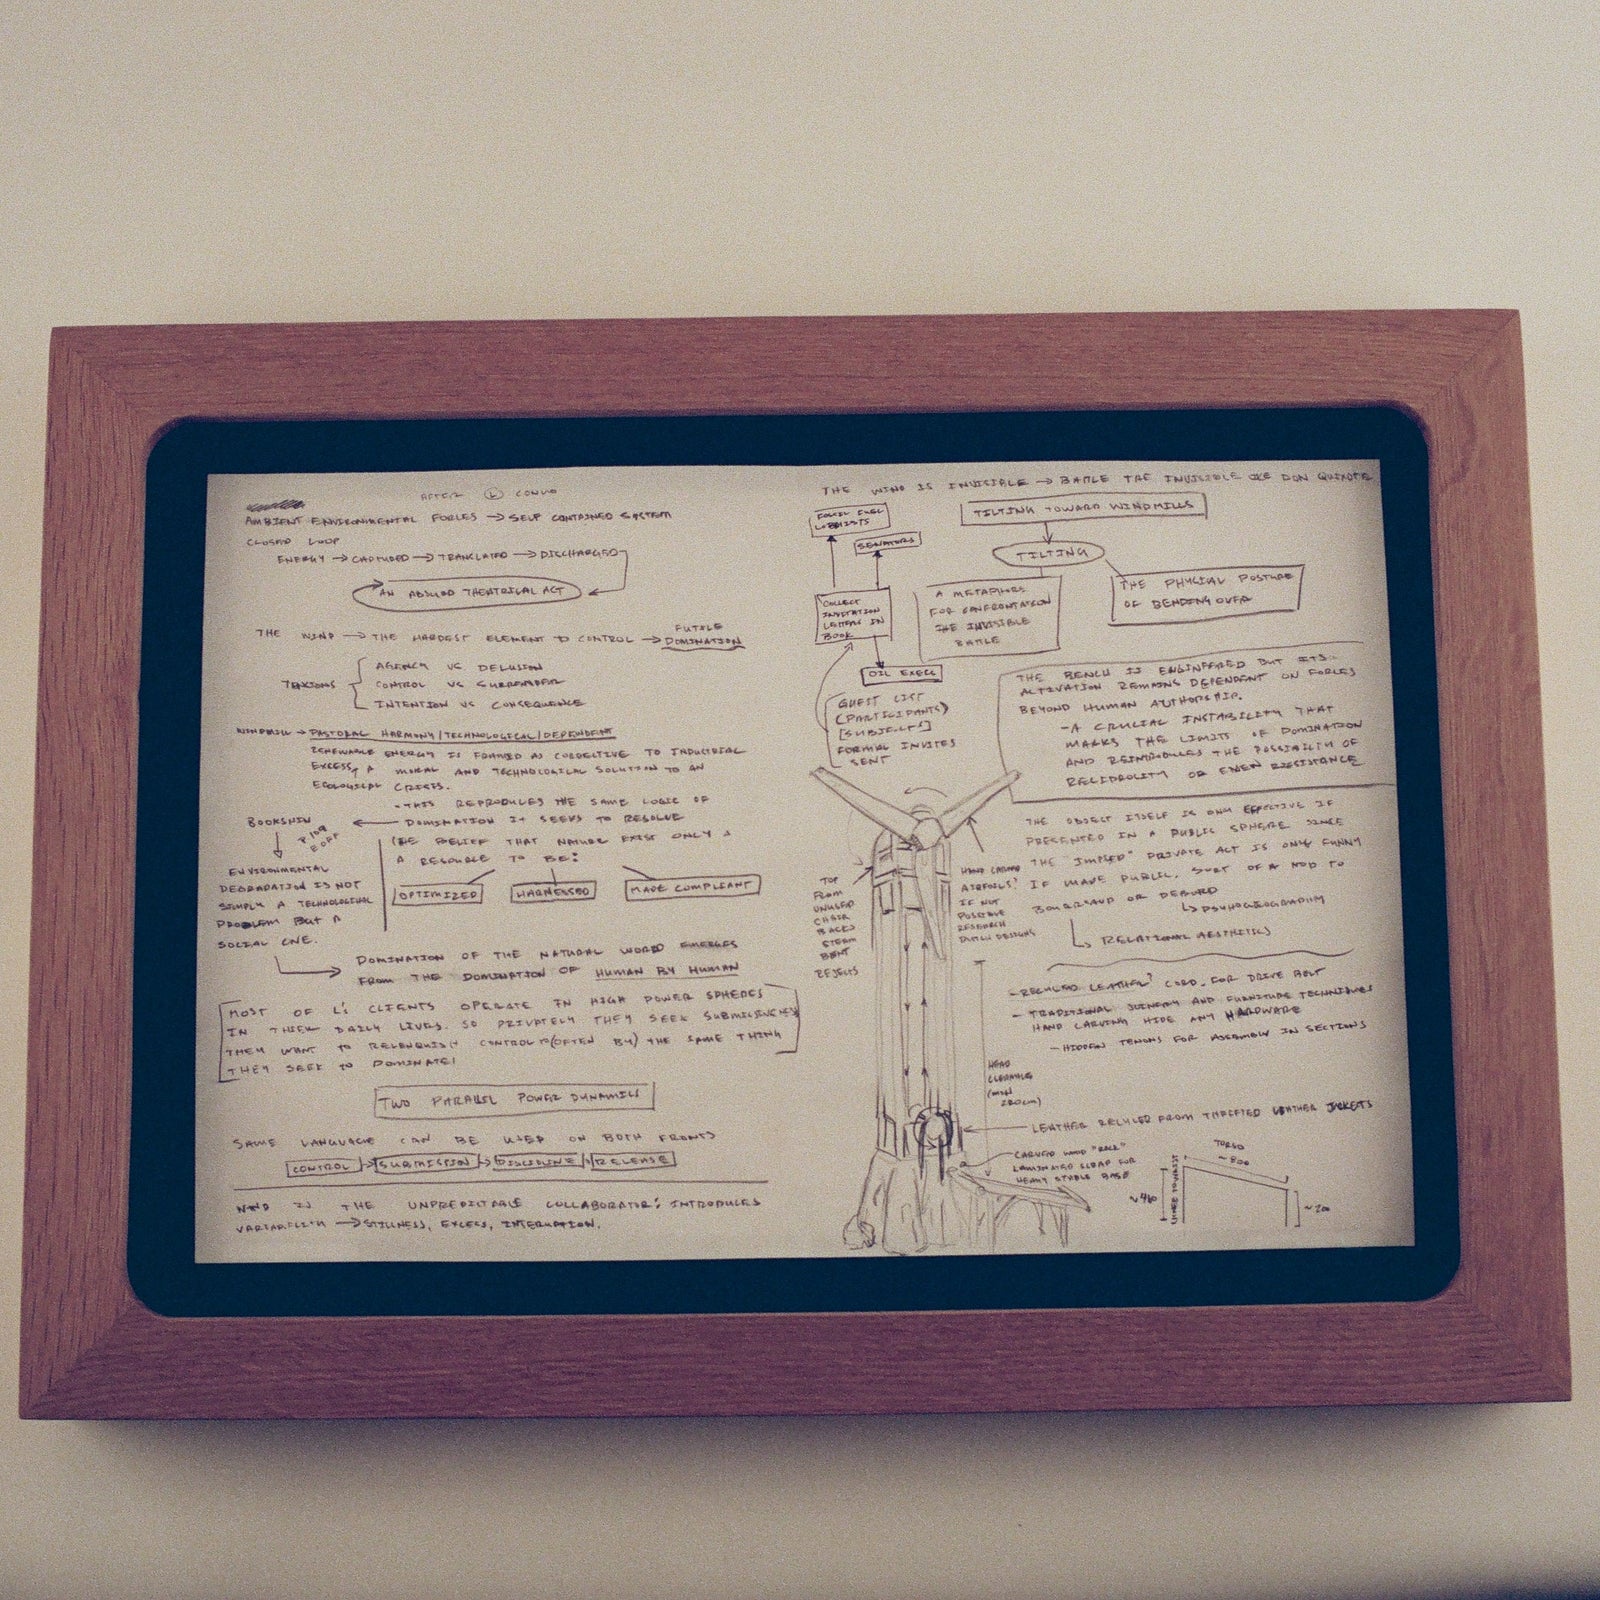 AFTER L CONVO
AMBIENT ENVIRONMENTAL FORCES → SELF CONTAINED SYSTEM
CLOSED LOOP
ENERGY → CAPTURED → TRANSLATED → DISCHARGED
AN ABSURD THEATRICAL ACT
THE WIND → THE HARDEST ELEMENT TO CONTROL → FUTILE
DOMINATION
TENSIONS
AGENCY VS DELUSION
CONTROL VS SURRENDER
INTENTION VS CONSEQUENCE
WINDMILL → PASTORAL HARMONY/TECHNOLOGICAL/DEPENDENT
RENEWABLE ENERGY IS FRAMED AS CORRECTIVE TO INDUSTRIAL
EXCESS, A MORAL AND TECHNOLOGICAL SOLUTION TO AN
ECOLOGICAL CRISIS.
- THIS REPRODUCES THE SAME LOGIC OF
DOMINATION IT SEEKS TO RESOLVE
(THE BELIEF THAT NATURE EXIST ONLY AS
A RESOURCE TO BE:
OPTIMIZED
HARNESSED
MADE COMPLIANT
BOOKCHIN
ENVIRONMENTAL
DEGRADATION IS NOT
SIMPLY A TECHNOLOGICAL
PROBLEM BUT A
SOCIAL ONE.
DOMINATION OF THE NATURAL WORLD EMERGES
FROM THE DOMINATION OF HUMAN BY HUMAN
MOST OF L'S CLIENTS OPERATE IN HIGH POWER SPHERES
IN THEIR DAILY LIVES. SO PRIVATELY THEY SEEK SUBMISSIVENESS
THEY WANT TO RELENQUISH CONTROL TO (OFTEN BY) THE SAME THING
THEY SEEK TO DOMINATE!
TWO PARALLEL POWER DYNAMICS
SAME LANGUAGE CAN BE USED ON BOTH FRONTS
CONTROL → SUBMISSION → DISCIPLINE → RELEASE
WIND IS THE UNPREDITABLE COLLABORATOR: INTRODUCES
VARIABILITY → STILLNESS, EXCESS,
THE WIND IS INVISIBLE → BATTLE THE INVISIBLE LIKE DON QUIXOTE
FOSSIL FUEL
LOBBYISTS
SENATORS
TILTING TOWARD WINDMILLS
TILTING
COLLECT
INVITATION
LETTERS IN
BOOK
A METAPHOR
FOR CONFRONTATION
THE INVISIBLE
BATTLE
THE PHYSICAL POSTURE
OF BENDING OVER
OIL EXECS
GUEST LIST
(PARTICIPANTS)
[SUBJECTS]
FORMAL INVITES
SENT
THE BENCH IS ENGINEERED BUT ITS..
ACTIVATION REMAINS DEPENDENT ON FORCES
BEYOND HUMAN AUTHORSHIP.
- A CRUCIAL INSTABILITY THAT
MARKS THE LIMITS OF DOMINATION
AND REINTRODUCES THE POSSIBILITY OF
RECIPROCITY OR EVEN RESISTANCE
THE OBJECT ITSELF IS ONLY EFFECTIVE IF
PRESENTED IN A PUBLIC SPHERE SINCE
THE "IMPLIED" PRIVATE ACT IS ONLY FUNNY
IF MADE PUBLIC. SORT OF A NOD TO
BOURRIAUD OR DEBORD
PSYCHOGEOGRAPHY
RELATIONAL AESTHETICS
TOP
FROM
UNUSED
CHAIR
BACKS
STEAM
BENT
REJECTS
HAND CARVED
AIRFOILS?
IF NOT
POSSIBLE
RESEARCH
DUTCH DESIGNS
- RECYCLED LEATHER? CORD. FOR DRIVE BELT
- TRADITIONAL JOINERY AND FURNITURE TECHNIQUES
HAND CARVING HIDE ANY HARDWARE
- HIDDEN TENONS FOR ASSEMBLY IN SECTIONS
HEAD
CLEARANCE
(MIN
LEATHER RECYCLED FROM THRIFTED LEATHER JACKETS
CARVED WOOD "ROCK"
LAMINATED SCRAP FOR
HEAVY STABLE BASE
TORSO
~ 800